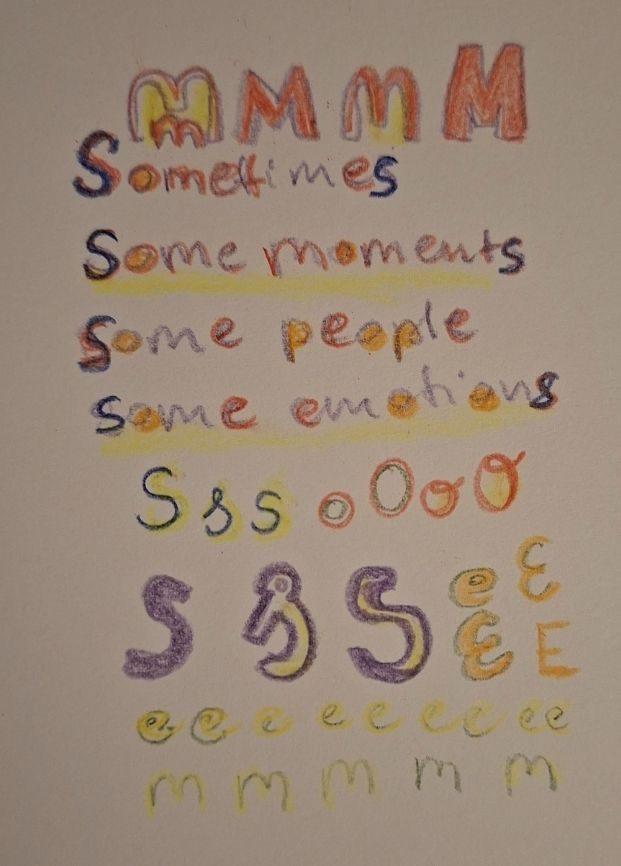 M M M M
Sometimes
Some moments
Some people
Some emotions
S s s o O o O
S S S e E
E E
e e e e e e e e e
m m m m m